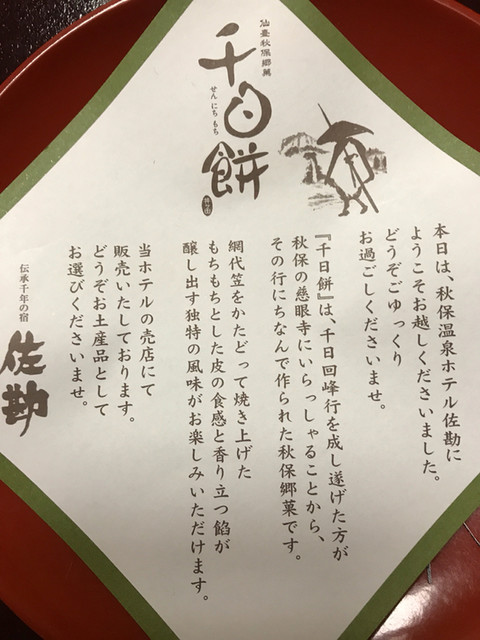 仙臺秋保郷菓
千日餅
せんにちもち
本日は、秋保温泉ホテル佐勘に
ようこそお越しくださいました。
どうぞごゆっくり
お過ごしくださいませ。
『千日餅』は、千日回峰行を成し遂げた方が
秋保の慈眼寺にいらっしゃることから、
その行にちなんで作られた秋保郷菓です。
網代笠をかたどって焼き上げた
もちもちとした皮の食感と香り立つ餡が
醸し出す独特の風味がお楽しみいただけます。
当ホテルの売店にて
販売いたしております。
どうぞお土産品として
お選びくださいませ。
伝承千年の宿
佐勘